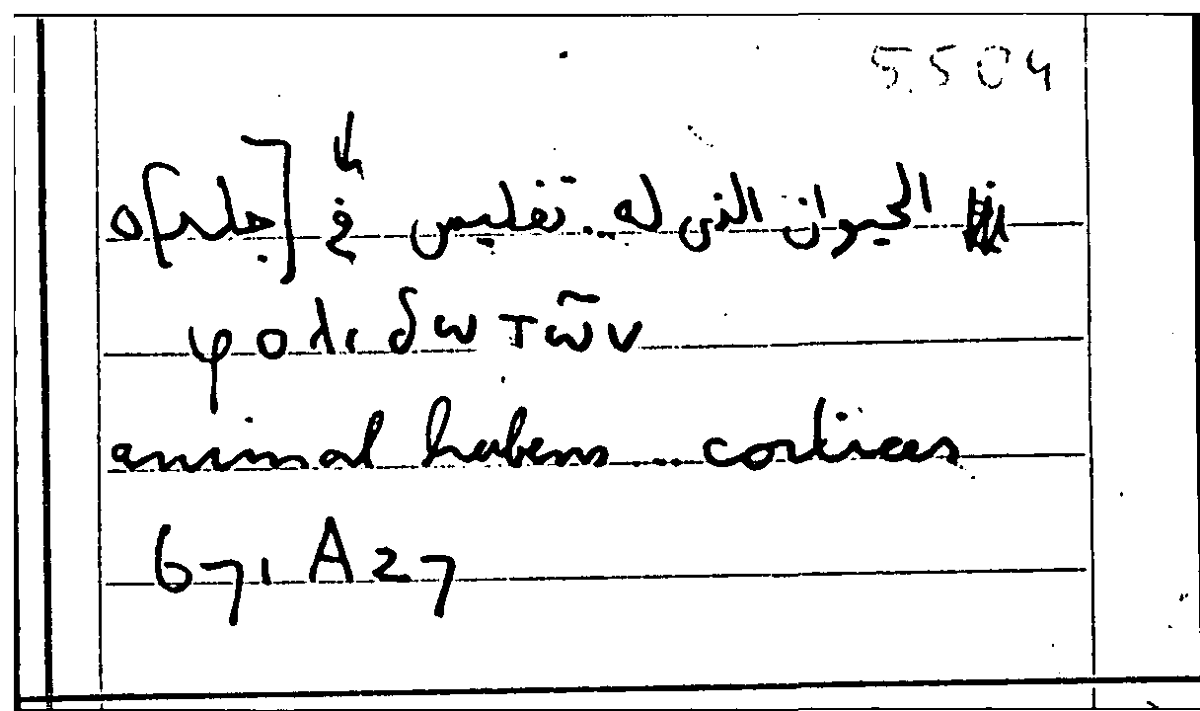 5504
الحيوان الذى له .. تفليس فى [جلد]ه
φολιδωτῶν
animal habens ... cortices
671 A 27